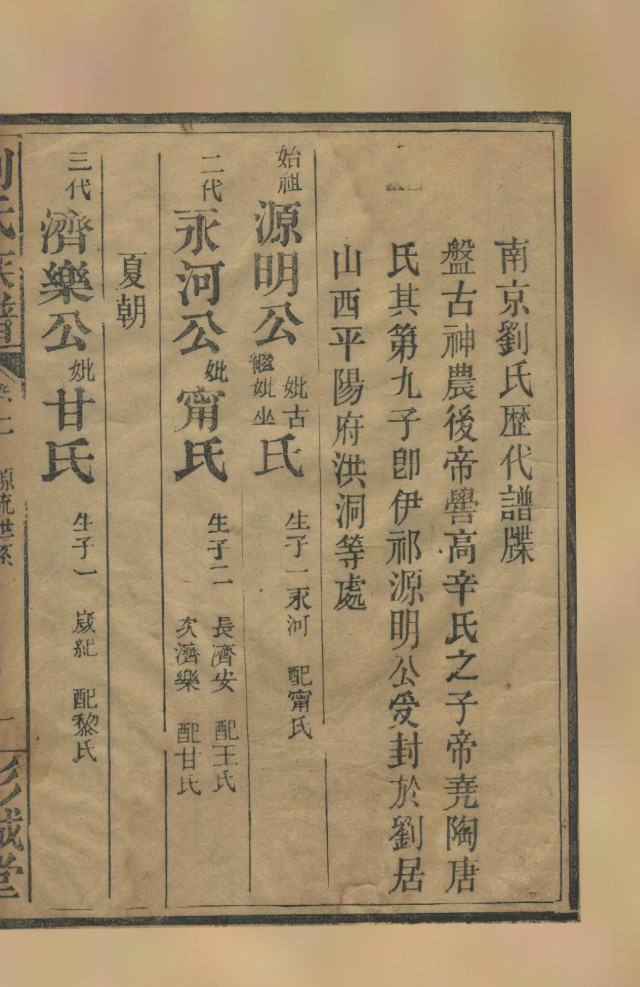 南京劉氏歷代譜牒
盤古神農後帝嚳高辛氏之子帝堯陶唐
氏其第九子卽伊祁源明公受封於劉居
山西平陽府洪洞等處
始祖 源明公 妣古 繼妣坐 氏 生子一永河 配甯氏
二代 永河公 妣甯氏 生子二 長濟安 配王氏
次濟樂 配甘氏
夏朝
三代 濟樂公 妣甘氏 生子一 歲紀 配黎氏
劉氏族譜 源流世系 彭城堂